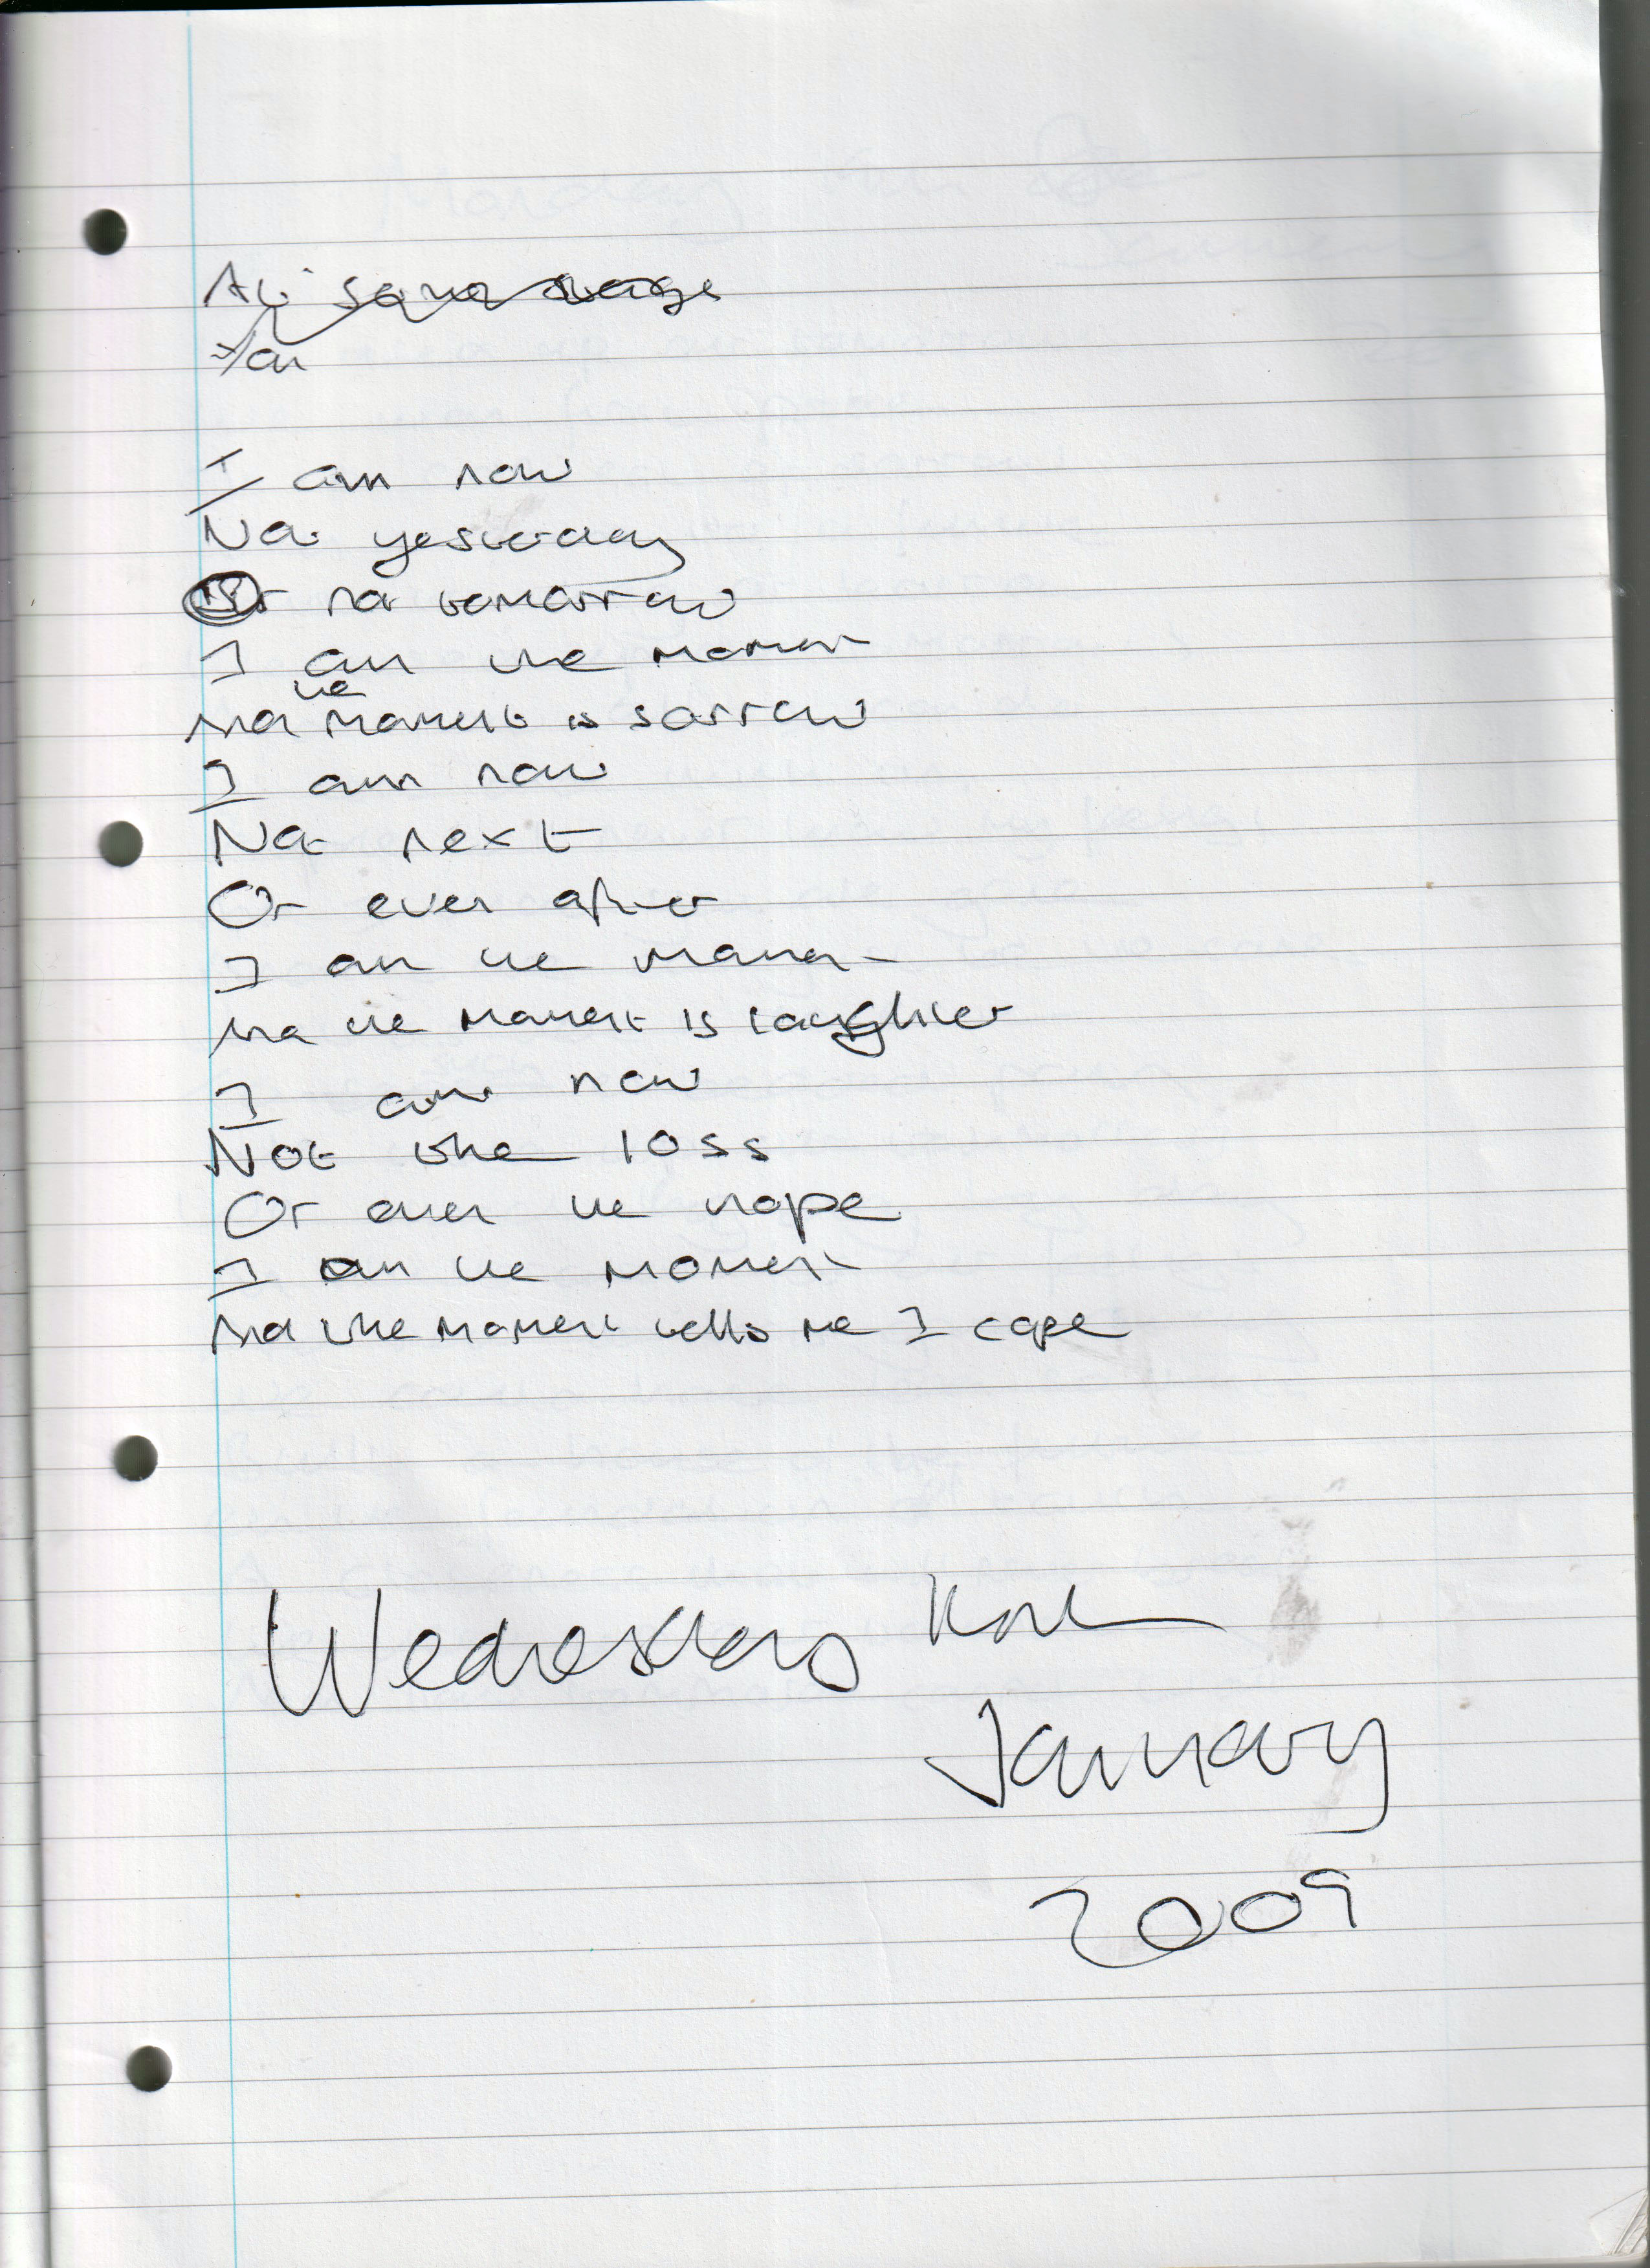 I am now
Not yesterday
Or not tomorrow
I am the moment
And the moment is sorrow
I am now
Not next
Or even after
I am the moment
And the moment is laughter
I am now
Not the loss
Or even the hope
I am the moment
And the moment tells me I cope
Wednesday
January
2009